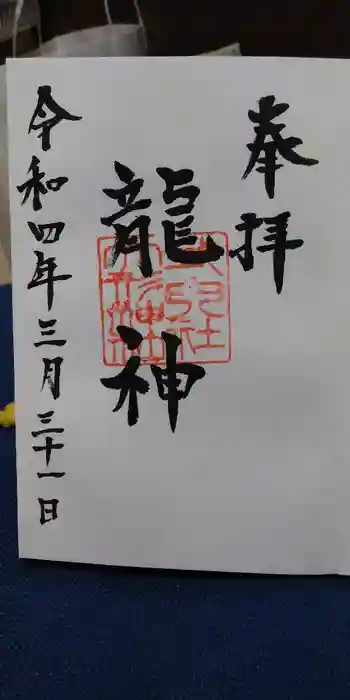 奉拝
龍神
令和四年三月三十一日